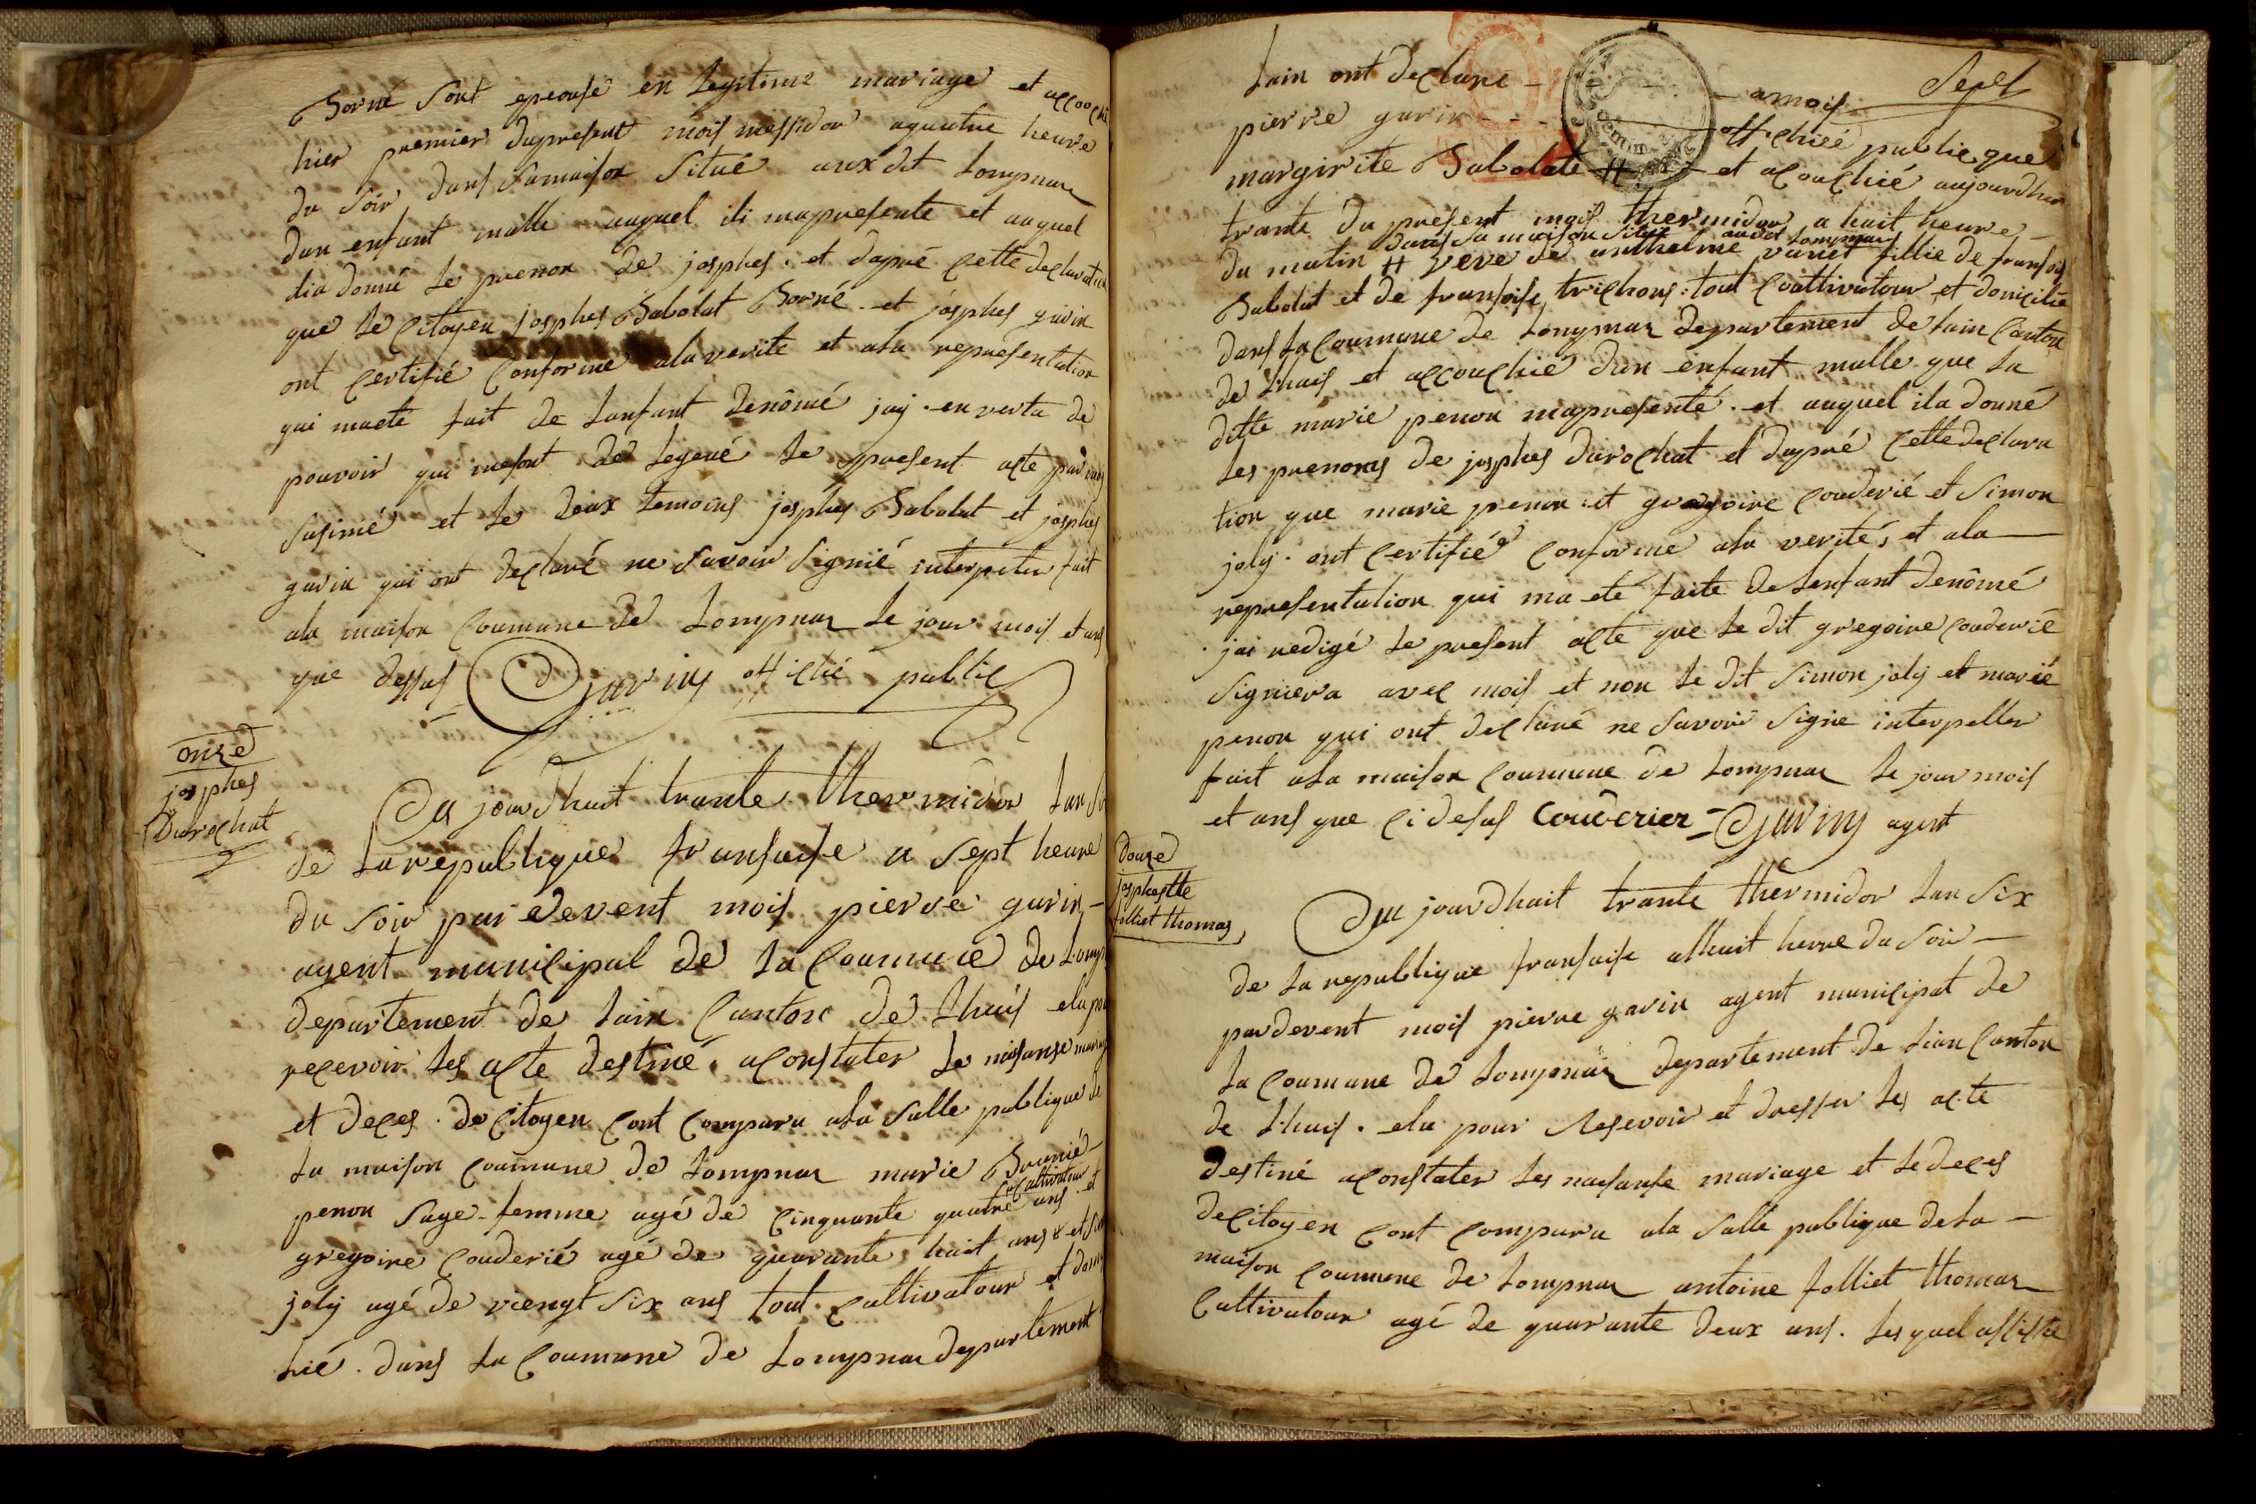 Borné Sont epeouse en Legitime mariage et accouché
hier premier dupresent mois messidor aquatre heure
du soir dans Samaison Situé aux dit Lompnaz
dun enfant malle auquel ili mapresente et auquel
dia donné Le prenon de josphes. et dapré cette declaration
que Le Citoyen josphes Babolat Borné. et josphes gavin
ont Certifié Conforme alaverite et ala representation
qui maete fait de Lanfant denômé jaj. en vertu de
pouvoir qui mesont de Legeué Le present acte
Susiné et Le deux temoins josphes Babolat et josphes
gavin qui ont declaré ne Savoir Signié interpeler fait
ala maison Coumune de Lompnaz Le jour mois et ans
que dessus Gavin officié public
onze
josphes
Durochat
Du jourdhuit trante thermidor Lan
de La republique fransaise a sept heure
du soir par devent mois pierre gavin
agent municipal de La Coumune de
departement de Lain Canton de Lhuis elupour
recevoir Les acte destiné aConstater Le naisanse mariage
et deces. de Citoyen Cont Comparu ala Salle publique de
La maison Coumune de Lompnaz marie Bournié
penon Sage-femme agé de Cinquante quatre ans et
Cultivatour
gregoire Couderié agé de quarante huit ans et
joly agé de viengt Six ans tout Cultivatour et
Lié. dans La Coumune de Lompnaz departement
Lain ont declare amois Sept
pierre gavin officieé publie que
margirite Babolate # et acouchié aujourdhui
trante du present mois thermidor a huit heure
dans Sa maison Situé audit Lompnaz
du matin # veve de anthelme varret fillie de fransois
Babolat et de fransoise trichons. tout Coultivatour et domicilié
dans La Coumune de Lompnaz departement de Lain Canton
de Lhuis et accouchié dun enfant malle que La
ditte marie penon mapresenté. et auquel ila donné
Les prenons de josphes durochat et dapré Cette declara
tion que marie penon et gregoire Couderié et Simon
joly. ont Certifié Conforme ala verité, et ala
representation qui ma eté faite de Lenfant denômé
jai redigé Le present acte que Le dit gregoire Couderié
Signiera avec mois et non Le dit Simon joly et marie
penon qui ont declaré ne Savoir Signe interpeller
fait ala maison Coumune de Lompnaz Le jour mois
et ans que Cidesus Couderier Gavin agent
douze
josphestte
folliet thomas
Du jourdhuit trante thermidor Lan Six
de La republique fransaise alhuit heure du Soir
pardevent mois pierre gavin agent municipat de
La Coumune de Lompnaz departement de Lian Canton
de Lhuis. elu pour Resevoir et dresser Les acte
destiné aConstater Les naisanse mariage et Le deces
deCitoyen Cont Comparu ala Salle publique de La
maison Coumune de Lompnaz antoine folliet thomas
Cultivatour agé de quarante deux ans. Lesquel assisté